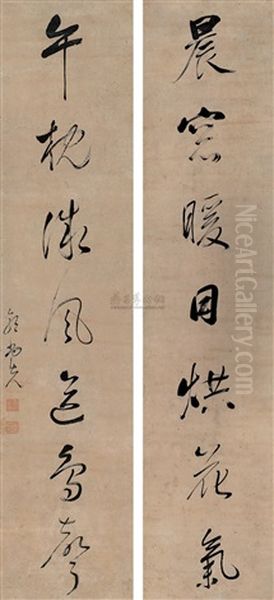 晨窓暖日烘花氣
午枕微風送鳥聲
NiceArtGallery.com